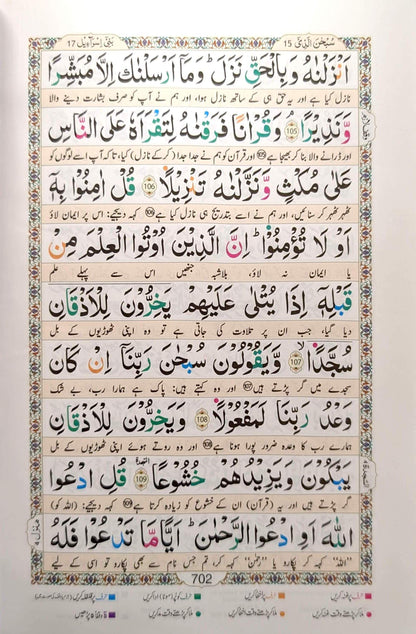 سُبْحٰنَ الَّذِىْ 15 بَنِىْٓ اِسْرَآءِيْل 17
اَنْزَلْنٰهُ وَبِالْحَقِّ نَزَلَ ؕ وَمَاۤ اَرْسَلْنٰكَ اِلَّا مُبَشِّرًا
نازل کیا ہے اور یہ حق ہی کے ساتھ نازل ہوا، اور ہم نے آپ کو صرف بشارت دینے والا
وَّنَذِيْرًا ۘ 105 وَقُرْاٰنًا فَرَقْنٰهُ لِتَقْرَاَهٗ عَلَى النَّاسِ
اور ڈرانے والا بنا کر بھیجا ہے 105 اور قرآن کو ہم نے جدا جدا (کرکے نازل) کیا، تاکہ آپ اسے لوگوں کو
عَلٰى مُكْثٍ وَّنَزَّلْنٰهُ تَنْزِيْلًا 106 قُلْ اٰمِنُوْا بِهٖۤ
ٹھہر ٹھہر کر سنائیں، اور ہم نے اسے بتدریج ہی نازل کیا ہے 106 کہہ دیجیے: اس پر ایمان لاؤ
اَوْ لَا تُؤْمِنُوْا ؕ اِنَّ الَّذِيْنَ اُوْتُوا الْعِلْمَ مِنْ
یا ایمان نہ لاؤ، بلاشبہ جنھیں اس سے پہلے علم
قَبْلِهٖۤ اِذَا يُتْلٰى عَلَيْهِمْ يَخِرُّوْنَ لِلْاَذْقَانِ
دیا گیا، جب ان پر تلاوت کی جاتی ہے تو وہ اپنی ٹھوڑیوں کے بل
سُجَّدًا ۙ 107 وَّيَقُوْلُوْنَ سُبْحٰنَ رَبِّنَاۤ اِنْ كَانَ
سجدے میں گر پڑتے ہیں 107 اور وہ کہتے ہیں: پاک ہے ہمارا رب، بے شک
وَعْدُ رَبِّنَا لَمَفْعُوْلًا 108 وَيَخِرُّوْنَ لِلْاَذْقَانِ
ہمارے رب کا وعدہ ضرور پورا ہونا ہے 108 اور وہ روتے ہوئے اپنی ٹھوڑیوں کے بل
يَبْكُوْنَ وَيَزِيْدُهُمْ خُشُوْعًا 109 قُلِ ادْعُوا
گر پڑتے ہیں اور یہ (قرآن) ان کے خشوع کو زیادہ کرتا ہے 109 کہہ دیجیے: (اللہ کو)
اللّٰهَ اَوِ ادْعُوا الرَّحْمٰنَ ؕ اَيًّا مَّا تَدْعُوْا فَلَهُ
"اللہ" کہہ کر پکارو یا "رحمٰن" کہہ کر، تم جس نام سے بھی پکارو تو اسی کے لیے
702